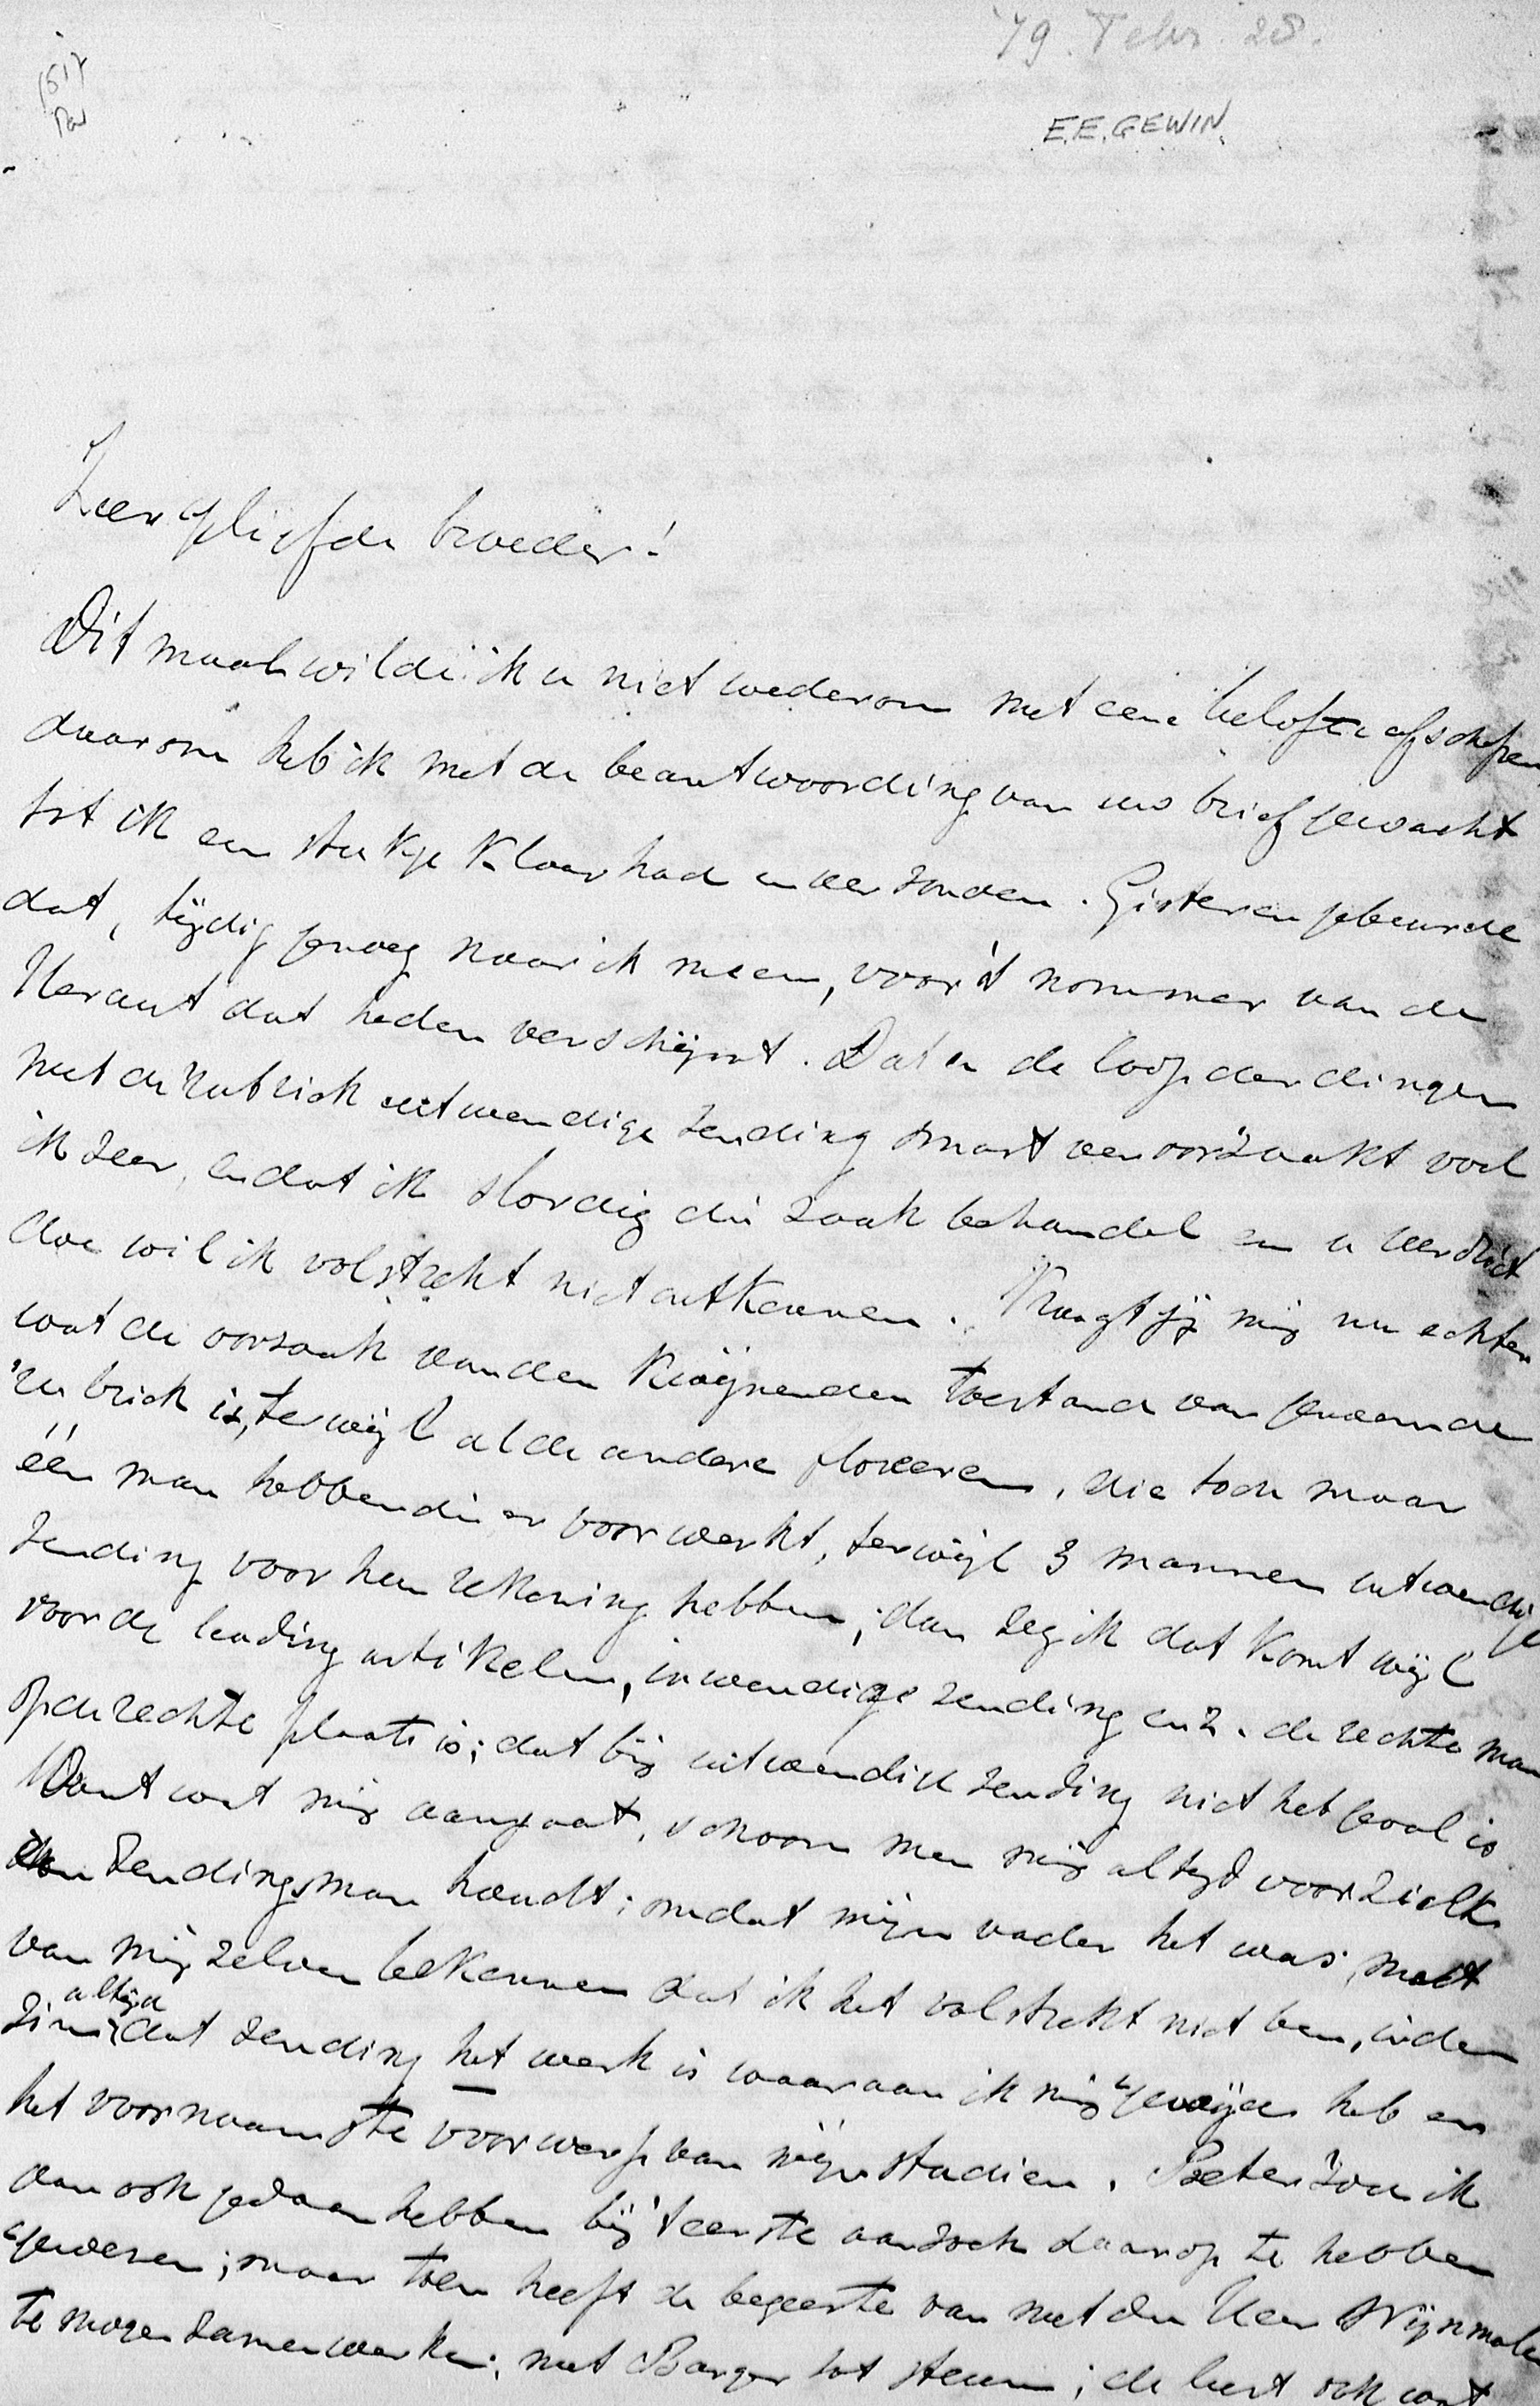 '79. Febr. 28.
E.E. GEWIN.
Zeer geliefde broeder!
Dit maal wilde ik u niet wederom met eene belofte afschepen
daarom heb ik met de beantwoording van uw brief gewacht
tot ik een stukje klaar had en verzonden. Gisteren gebeurde
dat, tijdig genoeg naar ik meen, voor 't nommer van de
Heraut dat heden verschijnt. Dat u de loop der dingen
met de rubriek uitwendige zending smart veroorzaakt voel
ik zeer, en dat ik slordig die zaak behandel en u verdriet
doe wil ik volstrekt niet ontkennen. Vraagt gij mij nu echter
wat de oorzaak van den kwijnenden toestand van genoemde
rubriek is, terwijl al de andere floreeren, die toch maar
één man hebben die er voor werkt, terwijl 3 mannen uitwendige
zending voor hun rekening hebben; dan zeg ik dat komt wijl
voor de leading artikelen, inwendige zending enz. de rechte man
op de rechte plaats is; dat bij uitwendige zending niet het geval is.
Want wat mij aangaat, schoon men mij altijd voor zulk
een Zendingsman houdt; omdat mijn vader het was, moet
van mij zelven bekennen dat ik het volstrekt niet ben, in den
zin altijd dat zending het werk is waaraan ik mij gewijd heb en
het voornaamste voorwerp van mijn studien. Beter zou ik
dan ook gedaan hebben bij 't eerste aanzoek daarop te hebben
gewezen; maar toen heeft de begeerte van met den Heer Wijnmalen
te mogen samenwerken, met Barger tot steun; de lust ook wat